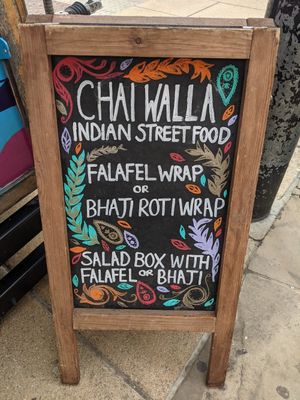 CHAI WALLA
INDIAN STREET FOOD
FALAFEL WRAP
OR
BHAJI ROTI WRAP
SALAD BOX WITH
FALAFEL OR BHAJI